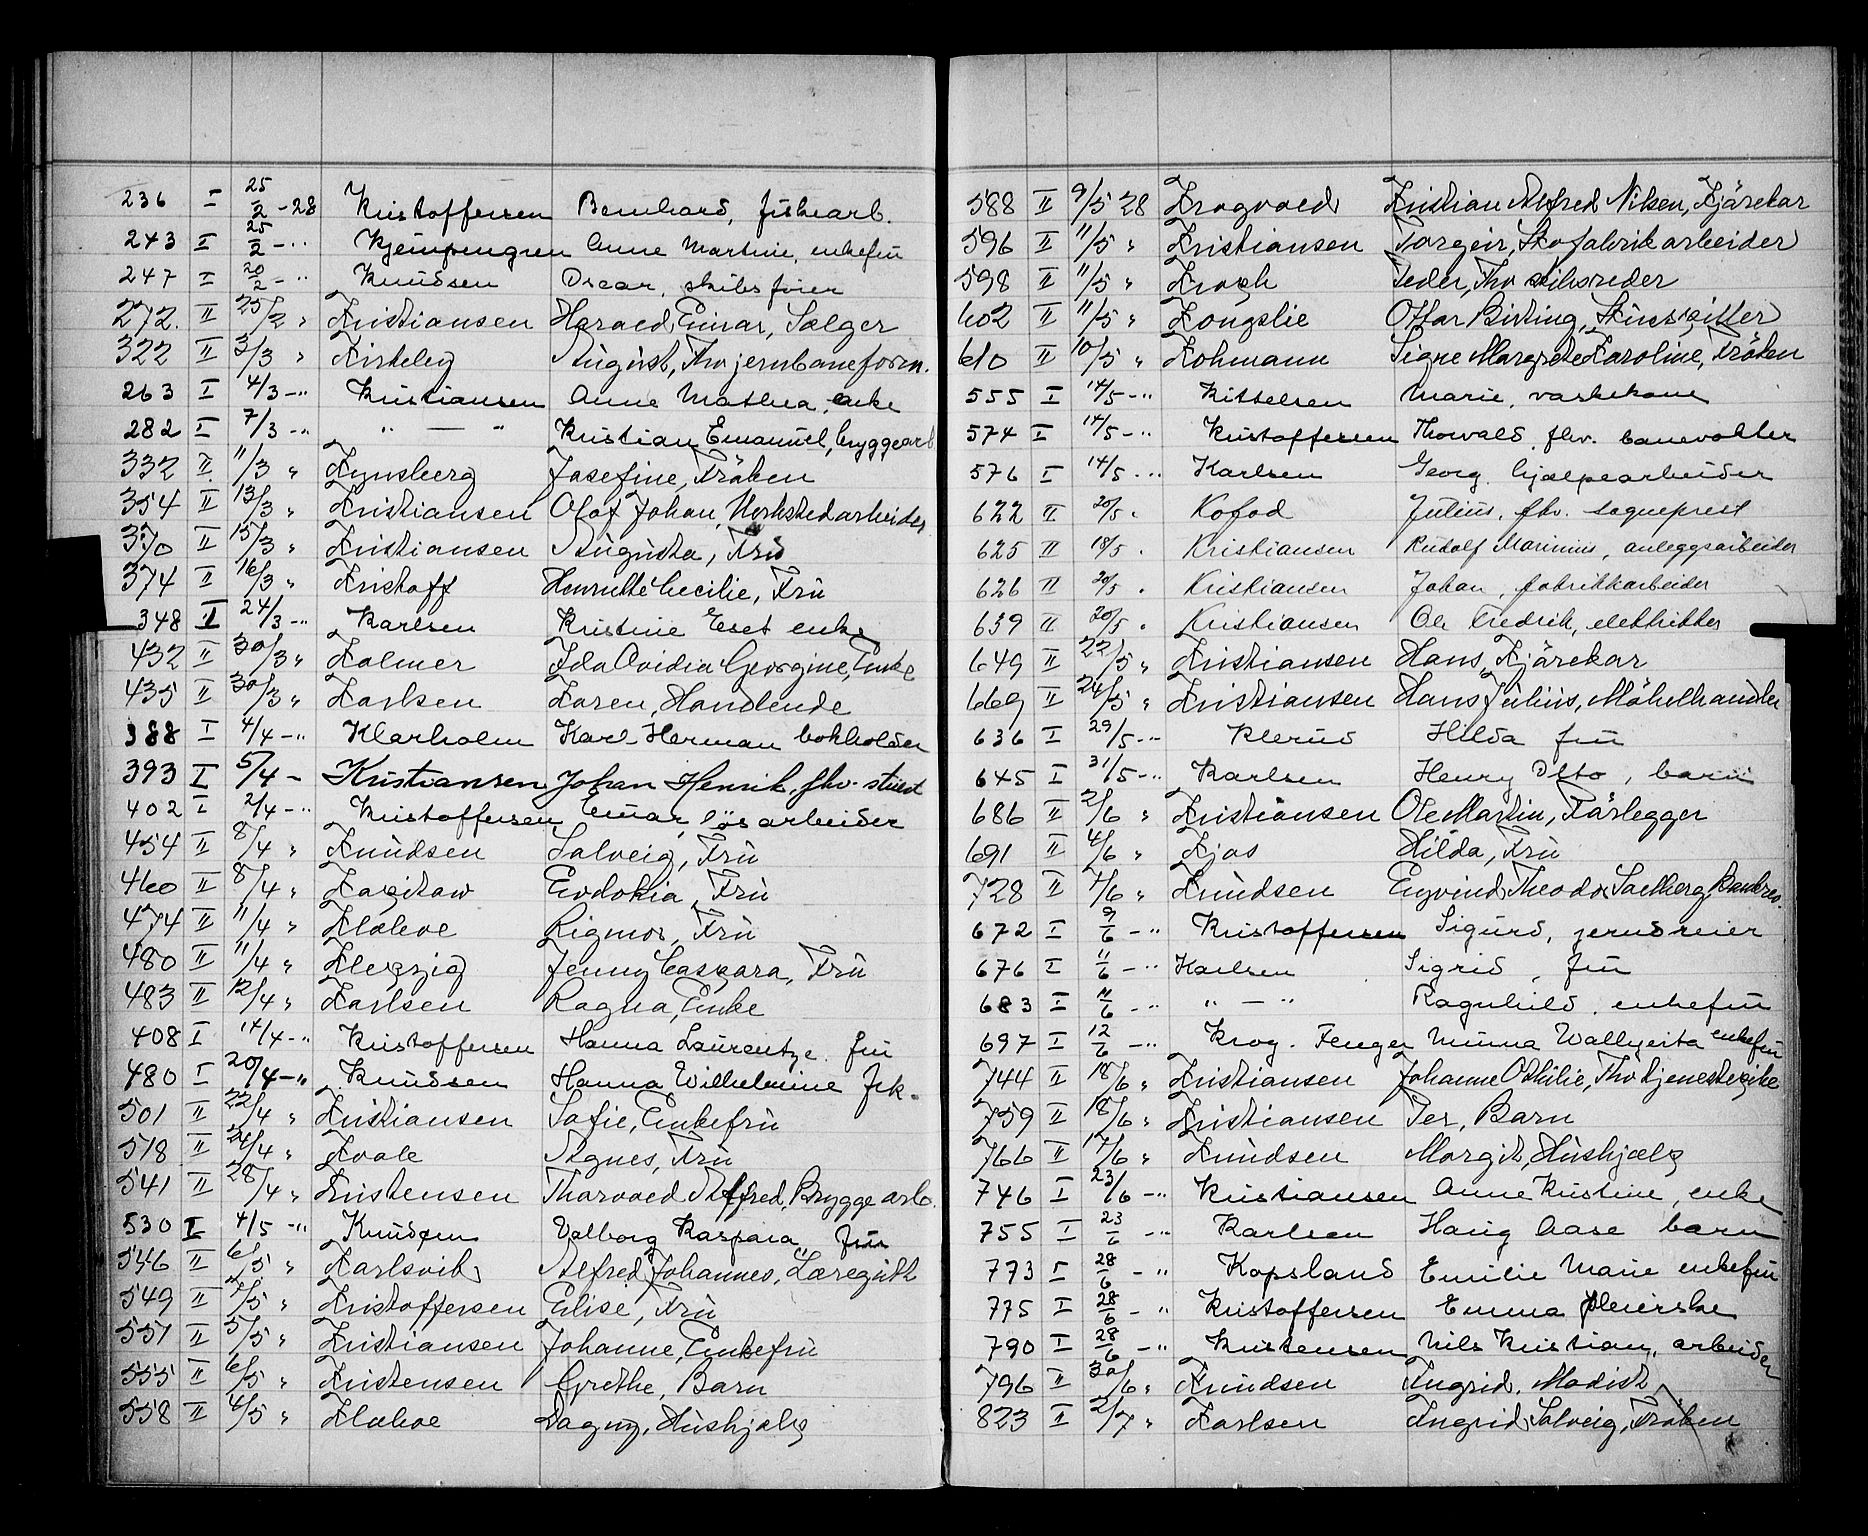 236 I 25/2 - 28 Kristoffersen Bernhard, fiskearb.
243 I 25/2 - " Kjempengren Anne Martine, enkefru
247 I 20/2 - " Knudsen Oscar, skibsfører
272. II 25/2 " Kristiansen Harald Einar, Sælger
322 II 3/3 " Kirkeby August, Fhv jernbaneform.
263 I 4/3 - " Kristiansen Anne Mathea, enke
282 I 7/3 - " " — " Kristian Emanuel, bryggearb
332 II 11/3 " Kynsberg Josefine, Frøken
354 II 13/3 " Kristiansen Olaf Johan, Verkstedarbeider
370 II 15/3 " Kristiansen Augusta, Fru
374 II 16/3 " Kristoff Henriette Cecilie, Fru
348 I 24/3 - " Karlsen Kristine Eset enke
432 II 30/3 " Kalmer Ida Ovidia Georgine, Enke
435 II 30/3 " Karlsen Karen, Handlende
388 I 4/4 - " Klarholm Karl Herman bokholder
393 I 5/4 - Kristiansen Johan Henrik, fhv. stuert
402 I 2/4 - " Kristoffersen Einar, løsarbeider
454 II 8/4 " Knudsen Solveig, Fru
460 II 8/4 " Kapitaw Evdokia, Fru
474 II 11/4 " Klokve Rigmor, Fru
480 II 11/4 " Klepzig Jenny Caspara, Fru
483 II 12/4 " Karlsen Ragna, Enke
408 I 14/4 - " Kristoffersen Hanna Laurentze fru
480 I 20/4 - " Knudsen Hanna Wilhelmine frk.
501 II 22/4 " Kristiansen Sofie, Enkefru
518 II 24/4 " Kvale Agnes, Fru
541 II 28/4 " Kristensen Thorvald Alfred, Bryggearb.
530 I 4/5 - " Knudsen Valborg Kaspara fru
546 II 6/5 " Karlsvik Alfred Johannes, Læregutt
549 II 7/5 " Kristoffersen Elise, Fru
551 II 5/5 " Kristiansen Johanne, Enkefru
555 II 6/5 " Kristensen Grethe, Barn
558 II 4/5 " Klokve Dagny, Hushjelp
588 II 9/5 28 Kragvald Kristian Alfred Nilsen, Kjørekar
596 II 11/5 " Kristiansen Torgeir, Skofabrikarbeider
598 II 11/5 " Krogh Peder, Fhv skibsreder
602 II 11/5 " Kongslie Ottar Birting,
610 II 10/5 " Kohmann Signe Margrete Karoline, Frøken
555 I 14/5 - " Kittelsen Marie, vaskekone
574 I 14/5 - " Kristoffersen Thorvald, fhv. banevokter
576 I 14/5 - " Karlsen Georg, hjælpearbeider
622 II 20/5 " Kofod Julius, fhv. sogneprest
625 II 18/5 " Kristiansen Rudolf Marinius, anleggsarbeider
626 II 20/5 " Kristiansen Johan, fabrikkarbeider
639 II 20/5 " Kristiansen Ole Fredrik, elektriker
649 II 22/5 " Kristiansen Hans, Kjørekar
669 II 24/5 " Kristiansen Hans Julius, Møbelhandler
636 I 29/5 - " Klerud Hilda fru
645 I 31/5 - " Karlsen Henry Otto, barn
686 II 2/6 " Kristiansen Ole Martin, Rørlegger
691 II 4/6 " Kjos Hilda, Fru
728 II 7/6 " Knudsen Eyvind Theodor Solberg, Bankrev.
672 I 9/6 - " Kristoffersen Sigurd, jerndreier
676 I 11/6 - " Karlsen Sigrid, fru
683 I 11/6 - " " — " Ragnhild, enkefru
697 I 12/6 - " Krog-Fenger Minna Wallgerta enkefru
744 II 18/6 " Kristiansen Johanne Othilie, Fhv tjenestepike
759 II 18/6 " Kristiansen Per, Barn
766 II 17/6 " Knudsen Margit, Hushjælp
746 I 23/6 - " Kristiansen Anne Kristine, enke
755 I 23/6 - " Karlsen Haug Aase barn
773 I 28/6 - " Kopsland Emilie Marie enkefru
775 I 28/6 - " Kristoffersen Emma pleierske
790 I 28/6 - " Kristensen Nils Kristian, arbeider
796 II 30/6 " Knudsen Ingrid, Modist
823 II 2/7 " Karlsen Ingrid Solveig, Frøken